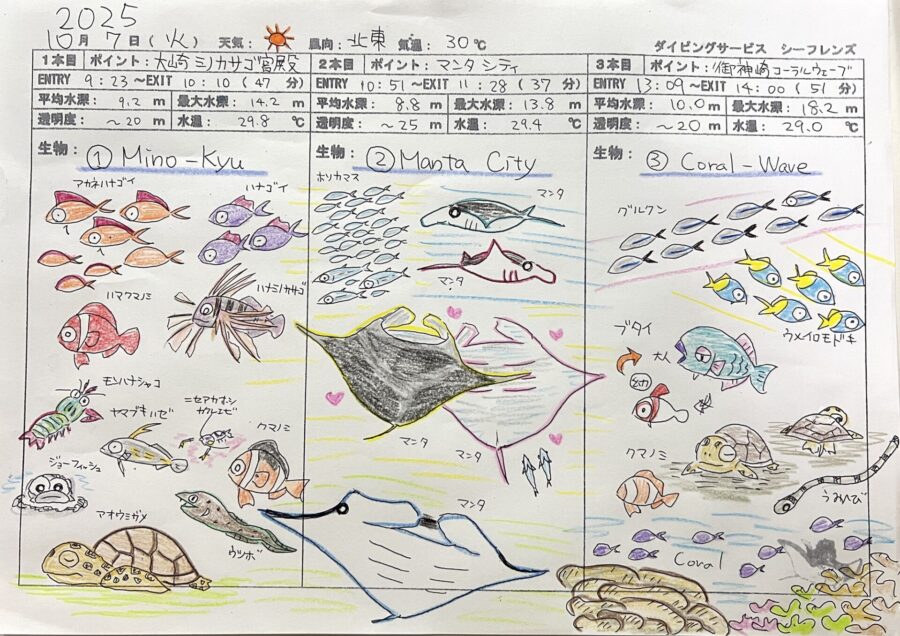 2025
10月 7日(火) 天気: 風向: 北東 気温: 30℃
ダイビングサービス シーフレンズ
1本目 ポイント: 大崎ミノカサゴ宮殿
ENTRY 9:23 ~EXIT 10:10 (47 分)
平均水深: 9.2 m 最大水深: 14.2 m
透明度: ~20 m 水温: 29.8 ℃
生物: ① Mino-Kyu
アカネハナゴイ
ハナゴイ
ハマクマノミ
ハナミノカサゴ
モンハナシャコ
ヤマブキハゼ
ニセアカホシカクレエビ
クマノミ
ジョーフィッシュ
アオウミガメ
ウツボ
2本目 ポイント: マンタシティ
ENTRY 10:51 ~EXIT 11:28 (37 分)
平均水深: 8.8 m 最大水深: 13.8 m
透明度: ~25 m 水温: 29.4 ℃
生物: ② Manta City
ホソカマス
マンタ
マンタ
マンタ
マンタ
マンタ
3本目 ポイント: 御神崎コーラルウェーブ
ENTRY 13:09 ~EXIT 14:00 (51 分)
平均水深: 10.0 m 最大水深: 18.2 m
透明度: ~20 m 水温: 29.0 ℃
生物: ③ Coral-Wave
グルクン
ウメイロモドキ
ブダイ
大人
クマノミ
うみへび
Coral